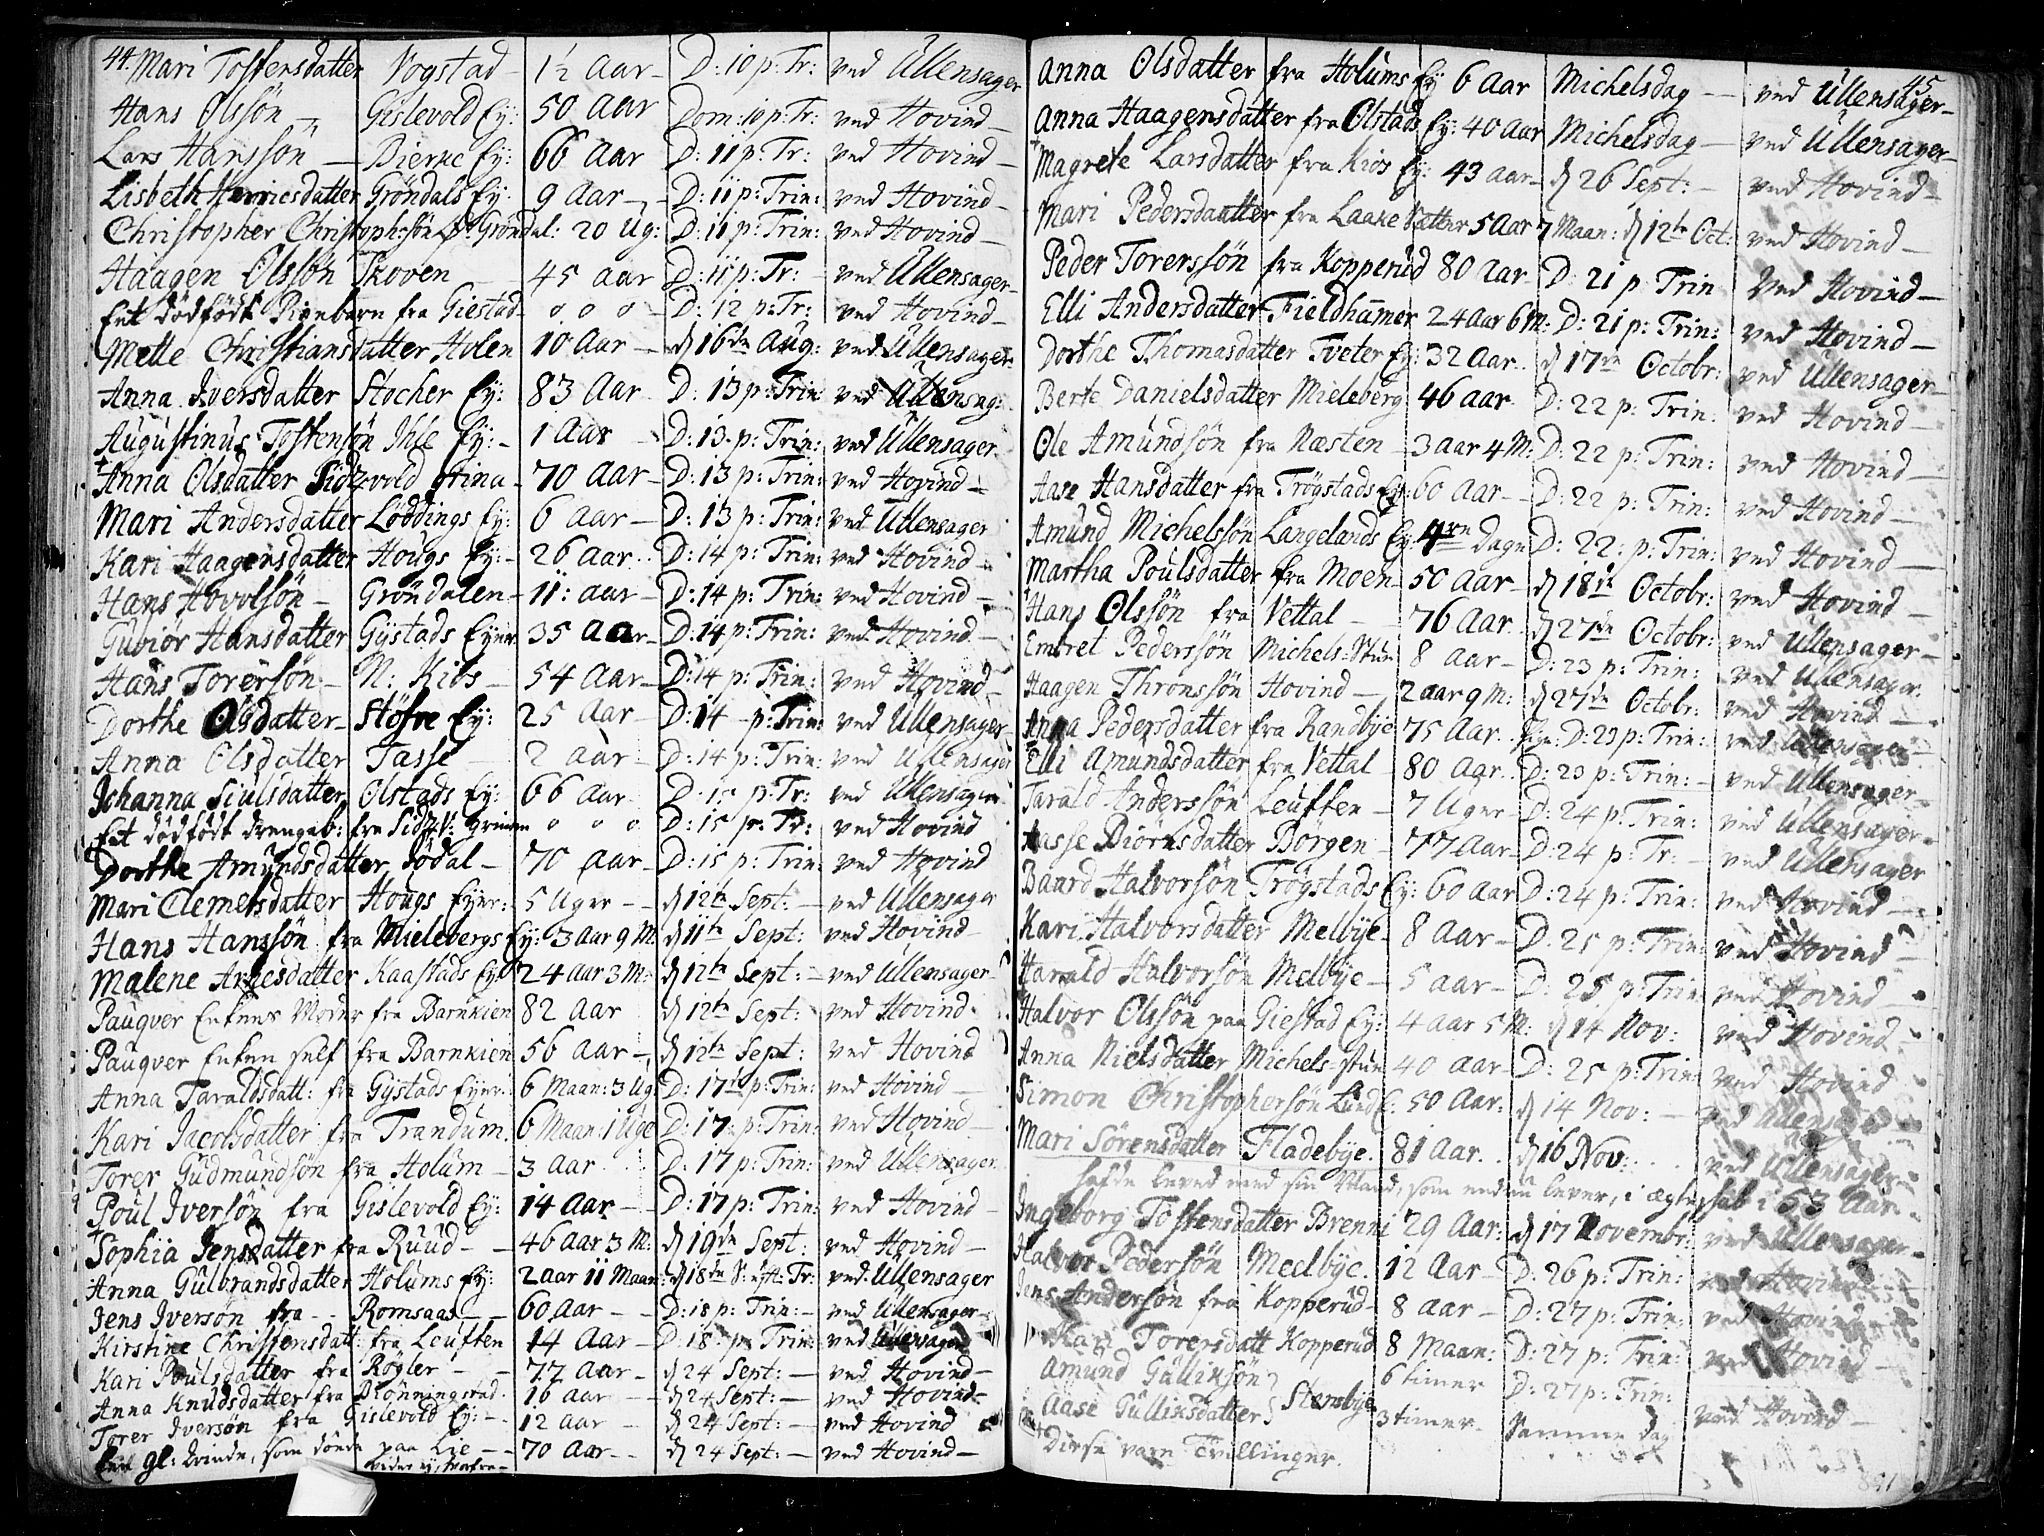 44. Mari Tostensdatter Nogstad - 1½ Aar - D: 10 p: Tr: ved Ullensager
Hans Olssön - Gislevold Ey: 50 Aar Dom: 10 p: Tr: ved Hovind -
Lars Hanssön - Bierke Ey: 66 Aar D: 11 p: Tr: ved Hovind -
Lisbeth Henricsdatter Gröndals Ey: 9 Aar - D: 11 p: Trin: ved Hovind -
Christopher Christophssön Gröndal: 20 Ug: D: 11 p: Trin: ved Hovind -
Haagen Olssön Skoven - 45 Aar D: 11 p: Tr: - ved Ullensager -
Eet dödfödt Pigebarn fra Giestad - o o o - D: 12 p: Tr: ved Hovind -
Mette Christiansdatter Holen 10 Aar - d 16de Aug: ved Ullensager
Anna Iversdatter Stocher Ey: 83 Aar D: 13 p: Trin: ved Ullensag:
Augustinus Tostensön Ihle Ey: - 1 Aar - D: 13 p: Trin: ved Ullensager
Anna Olsdatter Sidzvold 70 Aar - D: 13 p: Trin: ved Hovind -
Mari Andersdatter Löddings Ey: 6 Aar - D: 13 p: Trin: ved Ullensager
Kari Haagensdatter Hougs Ey: - 26 Aar D: 14 p: Trin: ved Hovind -
Hans Hovolsön - Gröndalen - 11: aar - D: 14 p: Trin: ved Hovind -
Gubiör Hansdatter Gystads Eyer 35 Aar - D: 14 p: Trin: ved Hovind -
Hans Torersön - N: Kiös - 54 Aar - D: 14 p: Trin: ved Hovind -
Dorthe Olsdatter - Ey: 25 Aar - D: 14 p: Trin: ved Ullensager -
Anna Olsdatter Tasse - 2 aar - D: 14 p: Trin: ved Ullensager
Johanna Siulsdatter Olstads Ey: 66 Aar D: 15 p: Tr: ved Ullensager
Eet dödfödt drengeb: fra o o o D: 15 p: Tr: ved Hovind
Dorthe Amundsdatter Södal - 70 Aar - D: 15 p: Trin: ved Hovind
Mari Clemetsdatter Hougs Eyer: 5 Uger - - d 12te Sept: - ved Ullensager
Hans Hanssön fra Mielebergs Ey: 3 Aar 9 M: d 11te Sept: ved Hovind -
Malene Arnesdatter Kaastads Ey: 24 Aar 3 M: d 12te Sept: - ved Ullensager -
Pauqver Enkens Moder fra Barnkien 82 Aar d 12te Sept: ved Hovind
Pauqver Enken self fra Barnkien 56 Aar - d 12te Sept: ved Hovind
Anna Taraldsdatt: fra Gystads Eyer: 6 Maan: 3 Ug D: 17 p: Trin: ved Hovind -
Kari Jacobsdatter fra Trandum. 6 Maan: 1 Uge D: 17 p: Trin: ved Hovind -
Torer Gudmundsön fra Holum - 3 Aar D: 17 p: Trin: ved Ullensager
Poul Iversön fra Gislevold Ey: 14 Aar - D: 17 p: Trin: ved Hovind -
Sophia Jensdatter fra Ruud - - 46 Aar 3 M: d 19de Sept: ved Hovind -
Anna Gulbrandsdatter Holums Ey: 2 aar 11 Maan: d 18de Tr: ved Ullensager
Jens Iversön fra - Romsaas - 60 Aar - - D: 18 p: Trin: - ved Ullensager -
Kirstine Christensdatt: fra Leuften 14 Aar - D: 18 p: Trin: ved Ullensager
Kari Poulsdatter fra Rogler - - 77 Aar - d 24 Sept: - ved Hovind -
Anna Knudsdatter fra Rönningstad 16 aar - d 24 Sept: - ved Hovind -
Torer Iversön fra Gislevold Ey: - 12 Aar - d 24 Sept: - ved Hovind
Een gl: Qvinde, som döde paa Lie - - 70 Aar - d 24 Sept: - ved Hovind -
45
Anna Olsdatter fra Holums Ey 6 Aar Michelsdag - ved Ullensager -
Anna Haagensdatter fra Olstads Ey: 40 Aar Michelsdag - ved Ullensager -
Magrete Larsdatter fra Kios Ey: 43 aar - d 26 Sept: - ved Hovind -
Mari Pedersdaatter fra Laake 5 Aar 7 Maan: d 12te Oct: ved Hovind -
Peder Torerssön fra Kopperud 80 Aar D: 21 p Trin ved Hovind -
Elli Andersdatter Fieldhamer 24 Aar 6 M: D: 21 p: Trin: ved Hovind -
Dorthe Thomasdatter Tveter Ey: 32 Aar d 17de Octobr: ved Ullensager -
Berte Danielsdatter Mieleberg 46 aar D: 22 p: Trin: ved Hovind -
Ole Amundsön fra Næsten - 3 aar 4 M: D: 22 p: Trin: ved Hovind -
Aase Hansdatter fra Trögstads Ey: 60 Aar - D: 22 p: Trin: ved Hovind -
Amund Michelssön Langelands Ey: 4re Dage D: 22: p: Trin: ved Hovind -
Martha Poulsdatter fra Moen 50 Aar - d 18de Octobr: ved Hovind -
Hans Olssön fra Vettal - 76 Aar d 27de Octobr: ved Ullensager -
Embret Pederssön Michels-Stue 8 Aar - D: 23 p: Trin: ved Ullensager
Haagen Thronssön Hovind - 2 aar 9 M: d 27de Octobr: ved Hovind -
Anna Pedersdatter fra Randbye 75 Aar D: 23 p: Trin: ved Ullensager -
Elli Amundsdatter fra Vettal 80 Aar D: 23 p: Trin: - ved Ullensager -
Tarald Anderssön Leuften - 7 Uger D: 24 p: Trin: ved Ullensager -
Aasse Biornsdatter Borgen - 77 Aar D: 24 p: Tr: - ved Ullensager
Baard Halvorsön Trögstads Ey: 60 Aar D: 24 p: Trin: ved Hovind -
Kari Halvorsdatter Melbye - 8 Aar - D: 25 p: Trin: ved Hovind
Harald Halvorsön Melbye - 5 aar - D: 25 p: Trin ved Hovind
Halvor Olssön paa Giestad Ey: 4 aar 5 M: d 14 Nov: ved Hovind
Anna Nielsdatter Michels-Stue 40 Aar D: 25 p: Trin: ved Hovind
Simon Christophersön Lund E: 50 Aar: d 14 Nov: - ved Ullensager
Mari Sörensdatter Fladebye 81 Aar d 16 Nov: ved Ullensager -
hafde leved med sin Mand, som endnu lever, i ægteskab i 53 Aar
Ingeborg Tostensdatter Brenni 29 Aar: d 17 Novembr: ved Ullensager
Halvor Pedersön Meelbye. 12 Aar - D: 26 p: Trin: ved Hovind
Jens Andersön fra Kopperud - 8 Aar - D: 27 p: Trin: ved Hovind
Kari Torersdatt Kopperud 8 Maan: D: 27 p: Trin: ved Hovind
Amund Gulliksön 6 timer D: 27 p: Trin:
Aase Gulliksdatter } Stensbye 3 timer Samme Dag ved Hovind -
Disse vare Tvillinger.